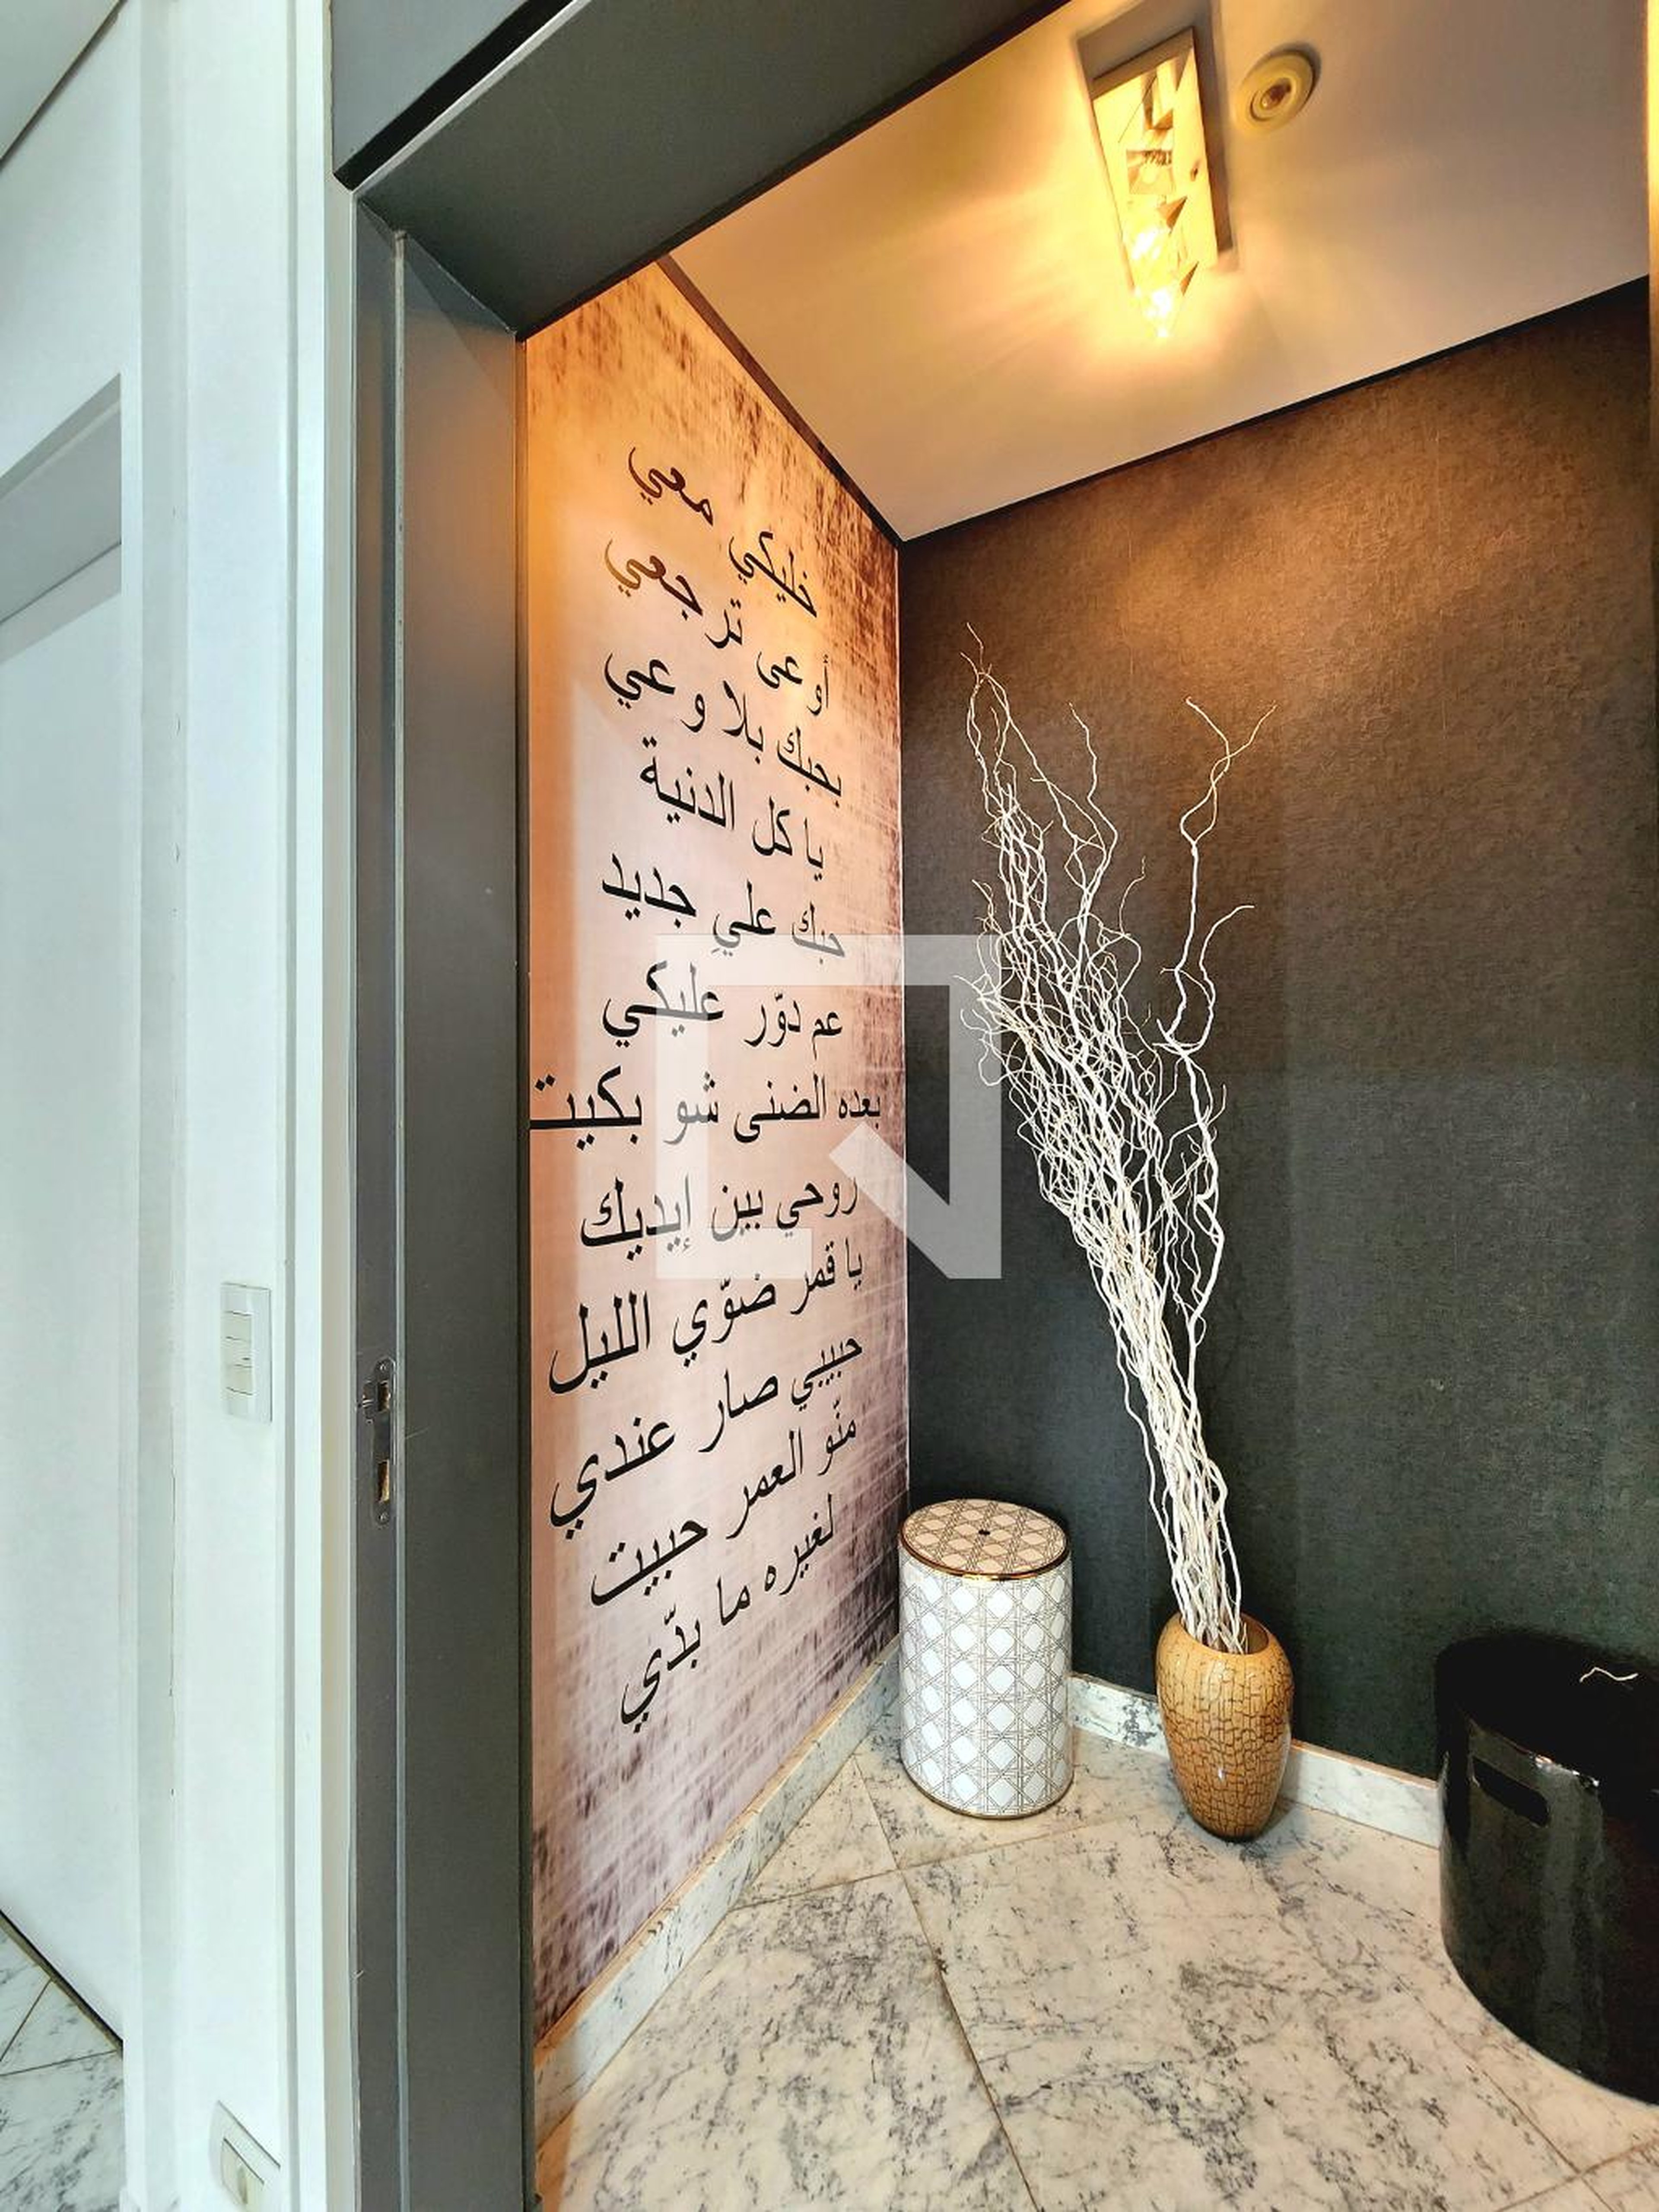 خليكي معي
أوعى ترجعي
بحبك بلا وعي
يا كل الدنية
حبك علي جديد
عم دوّر عليكي
بعده الضنى شو بكيت
روحي بين إيديك
يا قمر ضوّي الليل
حبيبي صار عندي
منّو العمر حبيت
لغيره ما بدّي